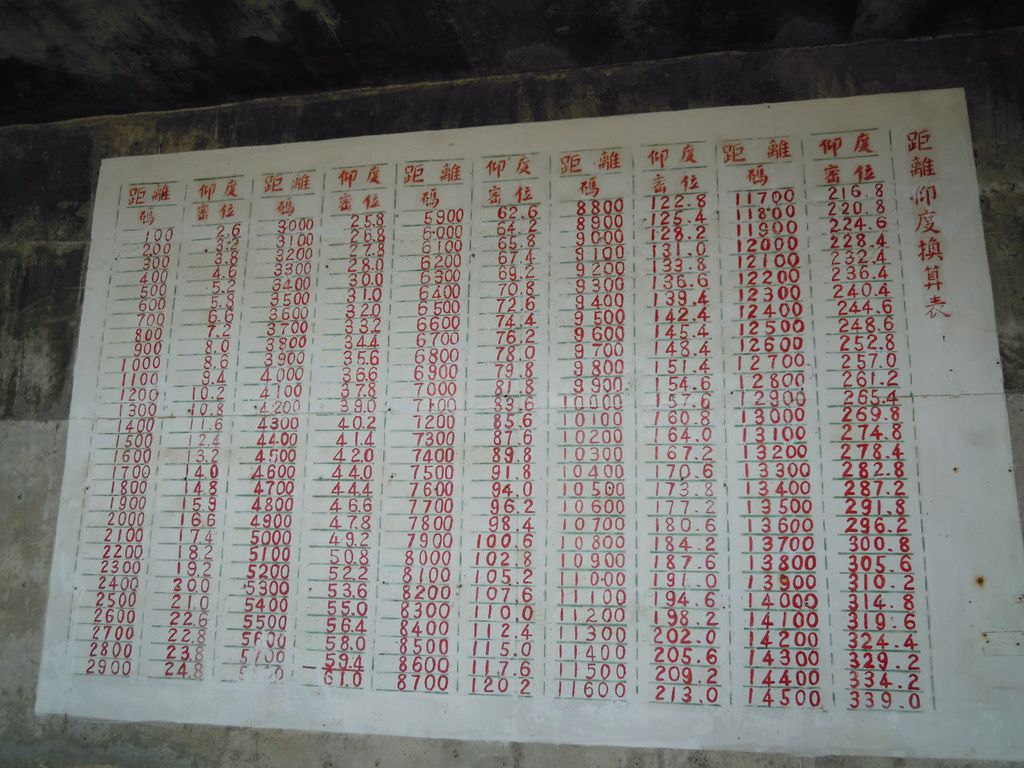 距離仰度換算表
距離 仰度 距離 仰度 距離 仰度 距離 仰度 距離 仰度
碼 密位 碼 密位 碼 密位 碼 密位 碼 密位
100 2.6 3000 25.8 5900 62.6 8800 122.8 11700 216.8
200 3.2 3100 26.8 6000 64.2 8900 125.4 11800 220.8
300 3.8 3200 27.8 6100 65.8 9000 128.2 11900 224.6
400 4.6 3300 28.8 6200 67.4 9100 131.0 12000 228.4
500 5.2 3400 30.0 6300 69.2 9200 133.8 12100 232.4
600 5.8 3500 31.0 6400 70.8 9300 136.6 12200 236.4
700 6.6 3600 32.0 6500 72.6 9400 139.4 12300 240.4
800 7.2 3700 33.2 6600 74.4 9500 142.4 12400 244.6
900 8.0 3800 34.4 6700 76.2 9600 145.4 12500 248.6
1000 8.6 3900 35.6 6800 78.0 9700 148.4 12600 252.8
1100 9.4 4000 36.6 6900 79.8 9800 151.4 12700 257.0
1200 10.2 4100 37.8 7000 81.8 9900 154.6 12800 261.2
1300 10.8 4200 39.0 7100 83.6 10000 157.6 12900 265.4
1400 11.6 4300 40.2 7200 85.6 10100 160.8 13000 269.8
1500 12.4 4400 41.4 7300 87.6 10200 164.0 13100 274.8
1600 13.2 4500 42.0 7400 89.8 10300 167.2 13200 278.4
1700 14.0 4600 44.0 7500 91.8 10400 170.6 13300 282.8
1800 14.8 4700 44.4 7600 94.0 10500 173.8 13400 287.2
1900 15.9 4800 46.6 7700 96.2 10600 177.2 13500 291.8
2000 16.6 4900 47.8 7800 98.4 10700 180.6 13600 296.2
2100 17.4 5000 49.2 7900 100.6 10800 184.2 13700 300.8
2200 18.2 5100 50.8 8000 102.8 10900 187.6 13800 305.6
2300 19.2 5200 52.2 8100 105.2 11000 191.0 13900 310.2
2400 20.0 5300 53.6 8200 107.6 11100 194.6 14000 314.8
2500 21.0 5400 55.0 8300 110.0 11200 198.2 14100 319.6
2600 22.6 5500 56.4 8400 112.4 11300 202.0 14200 324.4
2700 22.8 5600 58.0 8500 115.0 11400 205.6 14300 329.2
2800 23.8 5700 59.4 8600 117.6 11500 209.2 14400 334.2
2900 24.8 5800 61.0 8700 120.2 11600 213.0 14500 339.0